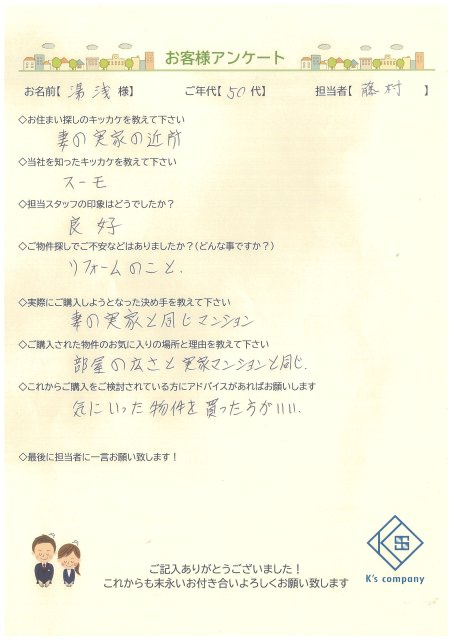 お客様アンケート
お名前【 湯浅 様】 ご年代【 50 代】 担当者【 藤村 】
◇お住まい探しのキッカケを教えて下さい
妻の実家の近所
◇当社を知ったキッカケを教えて下さい
スーモ
◇担当スタッフの印象はどうでしたか?
良好
◇ご物件探しでご不安などはありましたか?(どんな事ですか?)
リフォームのこと.
◇実際にご購入しようとなった決め手を教えて下さい
妻の実家と同じマンション
◇ご購入された物件のお気に入りの場所と理由を教えて下さい
部屋の広さと実家マンションと同じ.
◇これからご購入をご検討されている方にアドバイスがあればお願いします
気にいった物件を買った方がいい.
◇最後に担当者に一言お願い致します!
ご記入ありがとうございました!
これからも末永いお付き合いよろしくお願い致します
K's company